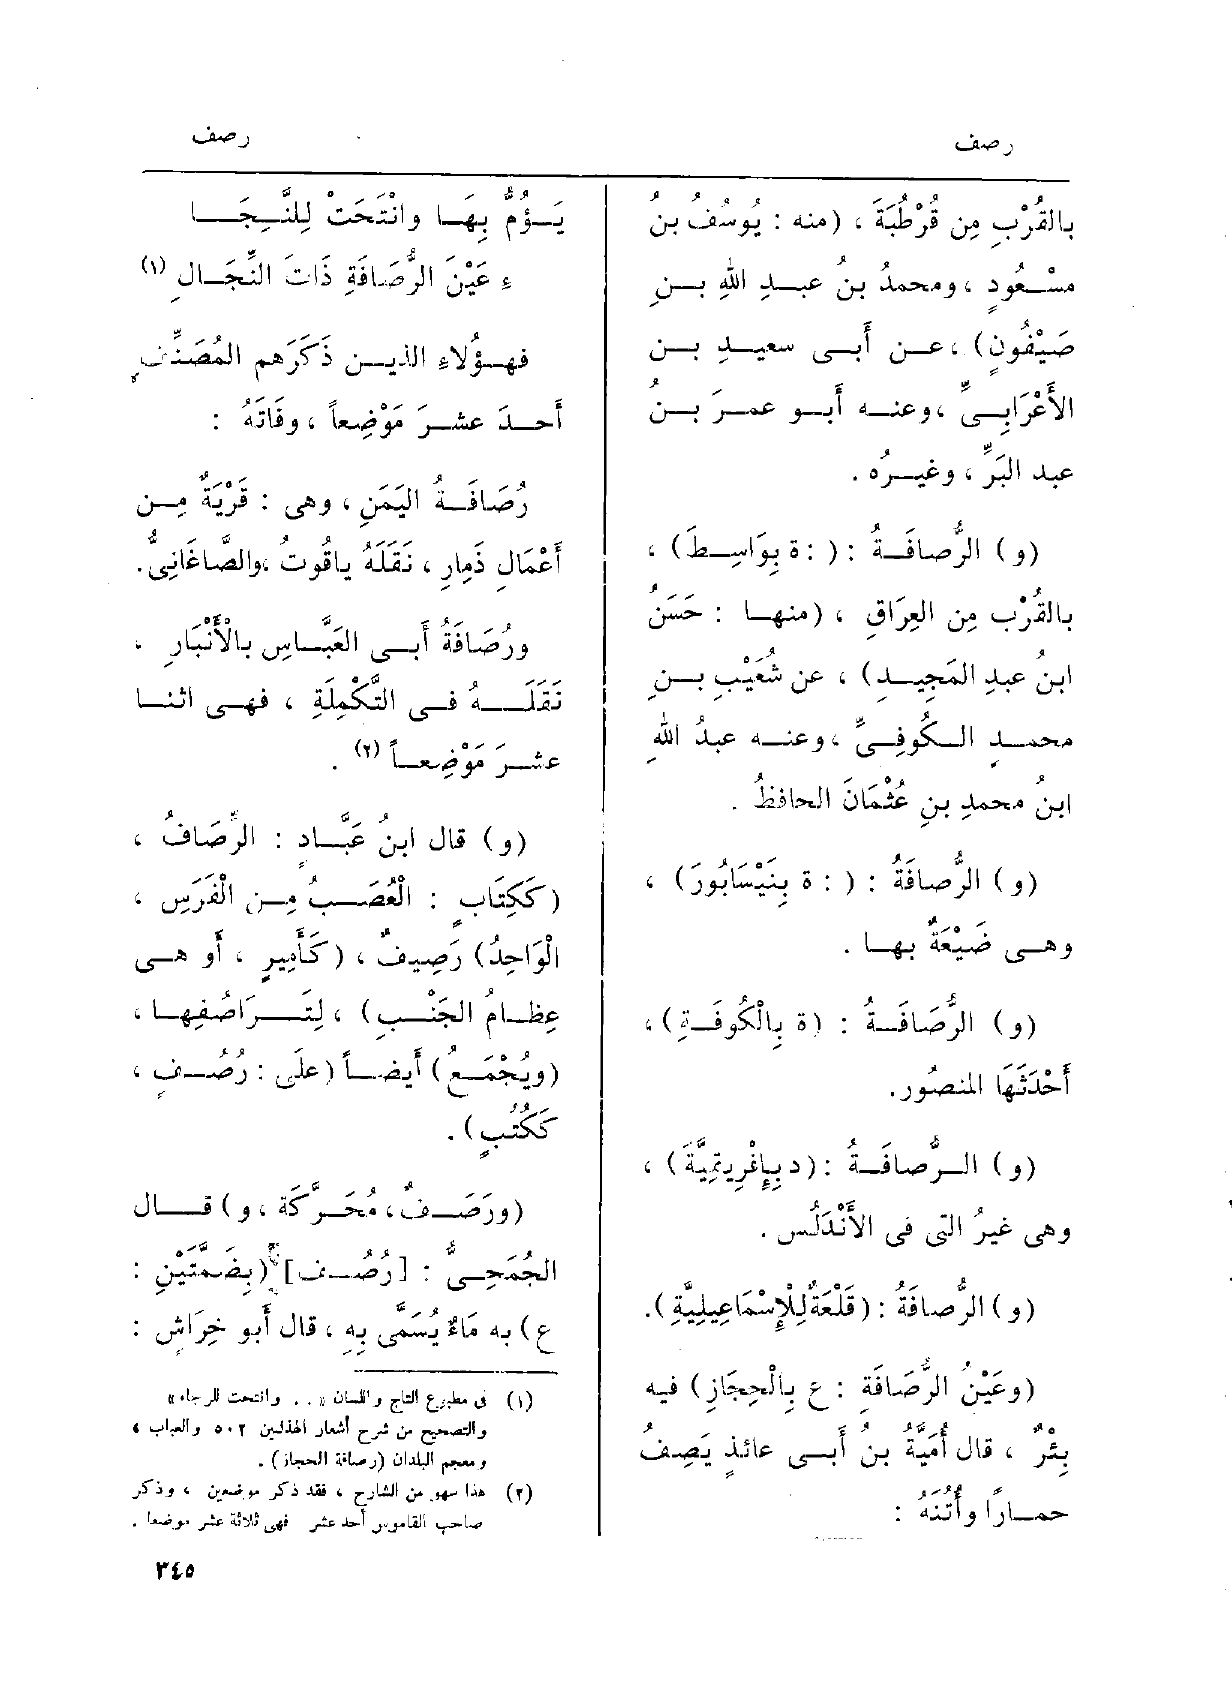 رصف
رصف
بالقُرْبِ مِن قُرْطُبَةَ ، (منه : يُوسُفُ بنُ
مَسْعُودٍ ، ومحمدُ بنُ عبدِ اللهِ بنِ
صَيْفُونٍ) ، عن أَبى سعيدِ بنِ
الأَعْرَابِىِّ ، وعنه أَبو عمرَ بنُ
عبد البَرِّ ، وغيرُه .
(و) الرُّصافَةُ : ( : ة بِوَاسِطَ) ،
بالقُرْبِ مِن العِرَاقِ ، (منها : حَسَنُ
ابنُ عبدِ المَجِيدِ) ، عن شُعَيْبِ بنِ
محمدٍ الكُوفِىِّ ، وعنه عبدُ اللهِ
ابنُ محمدِ بنِ عُثْمَانَ الحافظُ .
(و) الرُّصافَةُ : ( : ة بِنَيْسَابُورَ) ،
وهى ضَيْعَةٌ بها .
(و) الرُّصَافَةُ : (ة بِالْكُوفَةِ) ،
أَحْدَثَهَا المنصُور.
(و) الرُّصافَةُ : (د بِإِفْرِيقِيَّةَ) ،
وهى غيرُ التى فى الأَنْدَلُس .
(و) الرُّصافَةُ : (قَلْعَةٌ لِلْإِسْمَاعِيلِيَّةِ).
(وعَيْنُ الرُّصَافَةِ : ع بِالْحِجَازِ) فيه
بِئْرٌ ، قال أُمَيَّةُ بنُ أَبى عائذٍ يَصِفُ
حمارًا وأُتُنَهُ :
يَؤُمُّ بِهَا وانْتَحَتْ لِلنَّجَا
ءِ عَيْنَ الرُّصَافَةِ ذَاتَ النِّجَالِ (١)
فهؤُلاءِ الذين ذَكَرَهم المُصَنِّف
أَحدَ عشرَ مَوْضِعاً ، وفَاتَهُ :
رُصَافَةُ اليَمَنِ ، وهى : قَرْيَةٌ مِن
أَعْمَالِ ذَمِارِ ، نَقَلَهُ ياقُوتُ ، والصَّاغَانِىُّ.
ورُصَافَةُ أَبى العَبَّاسِ بالأَنْبَارِ ،
نَقَلَهُ فى التَّكْمِلَةِ ، فهى اثنا
عشرَ مَوْضِعاً (٢) .
(و) قال ابنُ عَبَّادٍ : الرِّصَافُ ،
(كَكِتَابٍ : الْعُصَبُ مِن الْفَرَسِ ،
الْوَاحِدُ) رَصِيفٌ ، (كَأَمِيرٍ ، أَو هى
عِظامُ الجَنْبِ) ، لِتَرَاصُفِها ،
(ويُجْمَعُ) أَيضاً (علَى : رُصُفٍ ،
كَكُتُبٍ).
(ورَصَفٌ ، مُحَرَّكَة ، و) قال
الجُمَحِىُّ : [رُصُف] (بِضَمَّتَيْنِ :
ع) به مَاءٌ يُسَمَّى بِهِ ، قال أَبو خِرَاشٍ :
(١) فى مطبوع التاج واللسان « . . وانتحت للرجاء »
والتصحيح من شرح أشعار الهذليين ٥٠٢ والعباب ،
ومعجم البلدان (رصافة الحجاز) .
(٢) هذا سهو من الشارح ، فقد ذكر موضعين ، وذكر
صاحب القاموس أحد عشر فهى ثلاثة عشر موضعا .
٣٤٥